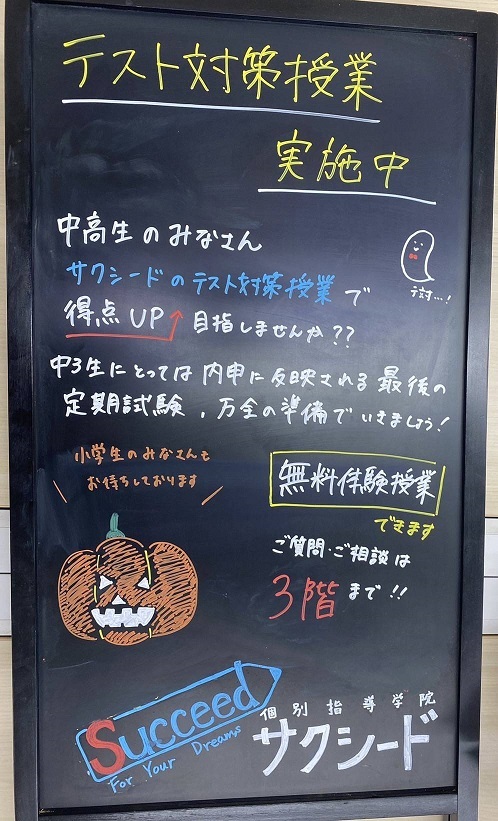 テスト対策授業
実施中
中高生のみなさん
サクシードのテスト対策授業で
得点UP↑目指しませんか??
テ対…!
中3生にとっては内申に反映される最後の
定期試験,万全の準備でいきましょう!
小学生のみなさんも
お待ちしております
無料体験授業
できます
ご質問・ご相談は
3階まで!!
Succeed
For Your Dreams
個別指導学院
サクシード